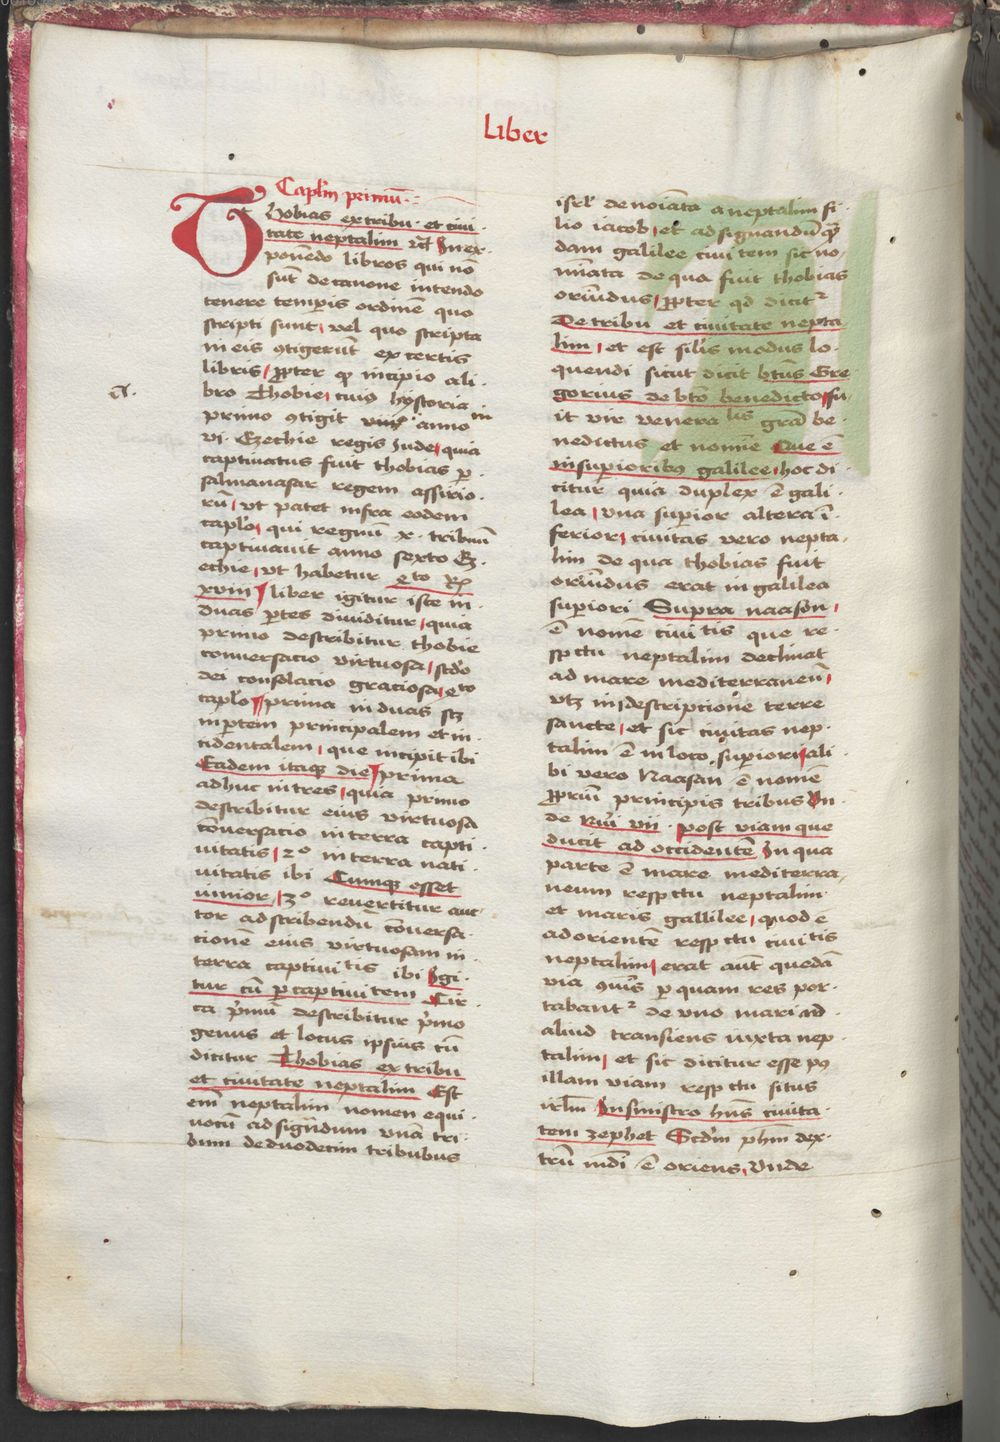 Liber
Caplm primu
Thobias ex tribu · et civi
tate neptalim rcl In ex
ponendo libros qui no
sut de canone intendo
tenere temporis ordine quo
scripti sunt, vel quo scripta
in eis 9tigerut ex certis
libris, propter qd incipio a li
bro Thobie, cuius hystoria
primo 9tigit anno
vi · Ezechie regis Iude, quia
captivatus fuit thobias per
salmanasar regem assirio
ru, ut patet infra eodem
caplo, qui regnum x · tribuum
captivavit anno sexto Ez
echie, ut habetur 4to
xviii liber igitur iste in
duas partes dividitur, quia
primo describitur thobie
conversacio virtuosa, scdo
dei consolacio graciosa, 4to
caplo, prima in duas scz
in partem principalem et in
cidentalem, que incipit ibi
Eadem itaque die prima
adhuc in tres, quia primo
describitur eius virtuosa
conversacio in terra capti
uitatis, 2o in terra nati
uitatis ibi Cumque esset
iunior, 3o revertitur auc
tor ad scribendu conversa
cione eius virtuosam in
terra captivitatis ibi Igi
tur cu per captivitatem Cir
ca primu describitur primo
genus et locus ipsius cu
dicitur Thobias ex tribu
et civitate neptalim Est
eni neptalim nomen equi
vocu ad signandum una tri
bum de duodecim tribubus
isrl denoiata a neptalim fi
lio iacob, et ad signandu qua
dam galilee civitem sic no
minata de qua fuit thobias
oriundus, propter qd dicitur
De tribu et civitate nepta
lim, et est silis modus lo
quendi sicut dicit btus Gre
gorius de bto benedicto, fu
it vir venerabilis gra be
nedictus et nomine Que e
in superioribus galilee, hoc di
citur quia duplex e gali
lea, una superior altera i
ferior, civitas vero nepta
lim de qua thobias fuit
oriundus erat in galilea
superiori Supra naason,
e nome civitis que re
spectu neptalim declinat
ad mare mediterraneu,
utz in descriptione terre
sancte, et sic civitas nep
talim e in loco superiori, ali
bi vero Naasan e nome
propriu principis tribus Un
de vii · post viam que
ducit ad occidente In qua
parte e mare mediterra
neum respectu neptalim
et maris gallilee, quod e
ad oriente respectu civitis
neptalim, erat aut queda
via 9muis per quam res por
tabantur de uno mari ad
aliud transiens iuxta nep
talim, et sic dicitur esse post
illam viam respectu situs
irlm In sinistro hns civita
tem zephet Scdm phm dex
tru mdi e oriens, Unde